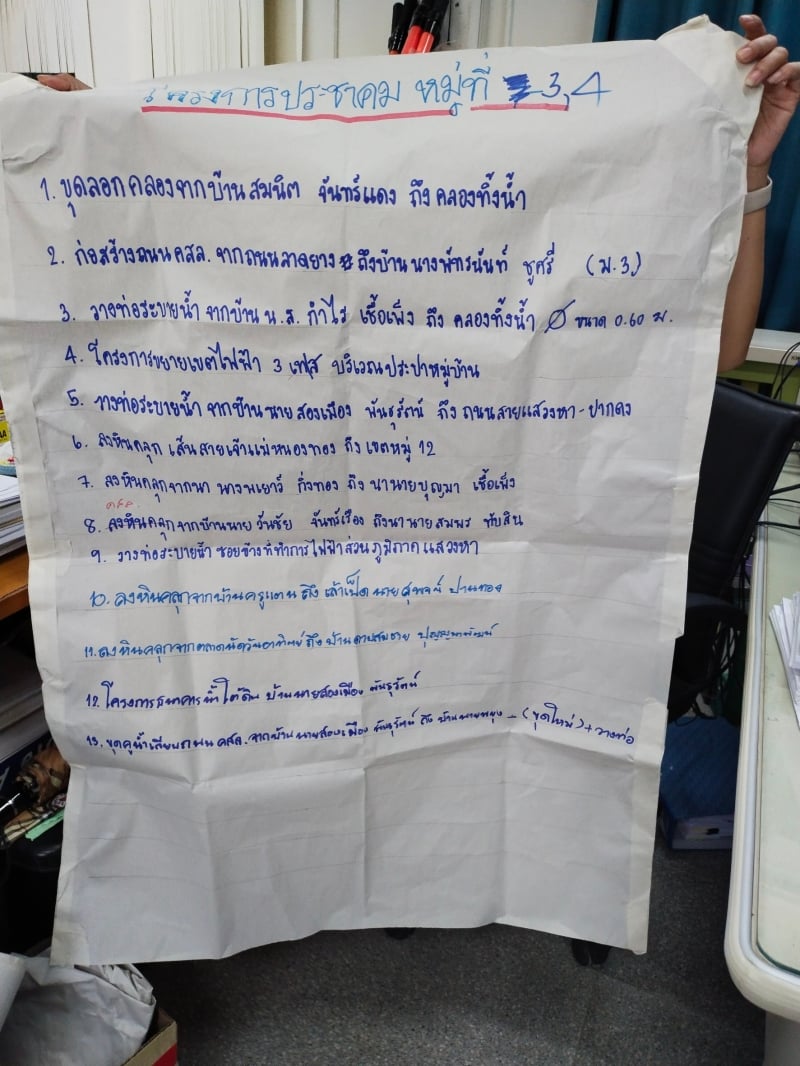 โครงการประชาคม หมู่ที่ 3,4
1. ขุดลอกคลองจากบ้านสมนิต จันทร์แดง ถึง คลองทิ้งน้ำ
2. ก่อสร้างถนน คสล. จากถนนลาดยาง ถึงบ้าน นางพัทธนันท์ ชูศรี (ม.3)
3. วางท่อระบายน้ำ จากบ้าน น.ส. กำไร เชื้อเพ็ง ถึง คลองทิ้งน้ำ Ø ขนาด 0.60 ม.
4. โครงการขยายเขตไฟฟ้า 3 เฟส บริเวณประปาหมู่บ้าน
5. วางท่อระบายน้ำ จากบ้านนายสองเมือง พันธุรัตน์ ถึง ถนนสายแสวงหา-ปากดง
6. ลงหินคลุก เส้นสายเจ้าแม่หนองทอง ถึง เขตหมู่ 12
7. ลงหินคลุกจากนา นางพเยาว์ กิ่งทอง ถึง นานายบุญมา เชื้อเพ็ง
คสล.
8. ลงหินคลุกจากบ้านนายวันชัย จันทร์เรือง ถึงนานายสมพร ทับสิน
9. วางท่อระบายน้ำ ซอยข้างที่ทำการไฟฟ้าส่วนภูมิภาคแสวงหา
10. ลงหินคลุกจากบ้านครูแตน ถึง เล้าเป็ด นายสุพจน์ ปานทอง
11. ลงหินคลุกจากตลาดนัดวันอาทิตย์ ถึง บ้านดาบสมชาย
12. โครงการธนาคารน้ำใต้ดิน บ้านนายสองเมือง พันธุรัตน์
13. ขุดคูน้ำเลียบถนน คสล. จากบ้านนายสองเมือง พันธุรัตน์ ถึง บ้านนายพยุง - (ขุดใหม่) + วางท่อ